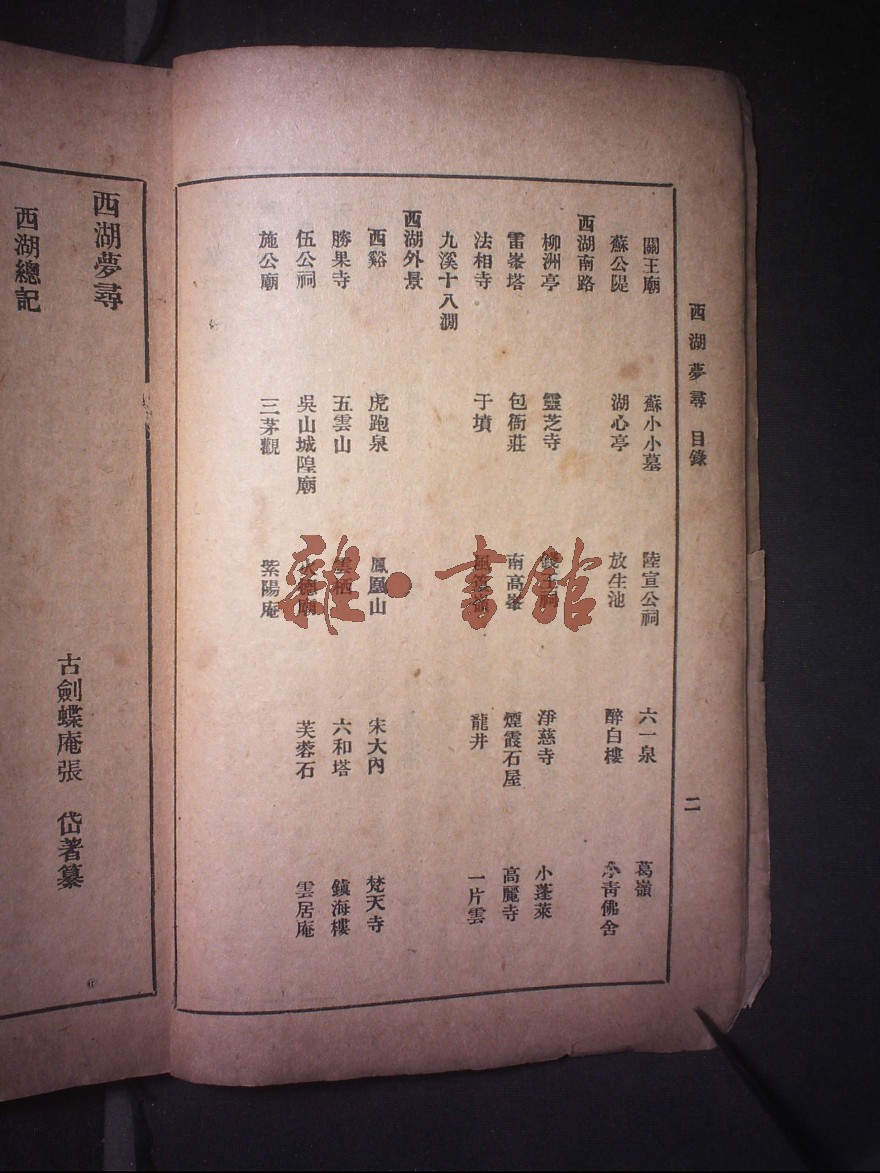 西湖夢尋 目錄 二
關王廟 蘇小小墓 陸宣公祠 六一泉 葛嶺
蘇公隄 湖心亭 放生池 醉白樓 小青佛舍
西湖南路
柳洲亭 靈芝寺 錢王祠 淨慈寺 小蓬萊
雷峯塔 包衙莊 南高峯 煙霞石屋 高麗寺
法相寺 于墳 風篁嶺 龍井 一片雲
九溪十八澗
西湖外景
西谿 虎跑泉 鳳凰山 宋大內 梵天寺
勝果寺 五雲山 雲栖 六和塔 鎮海樓
伍公祠 吳山城隍廟 火德廟 芙蓉石 雲居庵
施公廟 三茅觀 紫陽庵
西湖夢尋
古劍蝶庵張 岱著纂
西湖總記
雜·書館